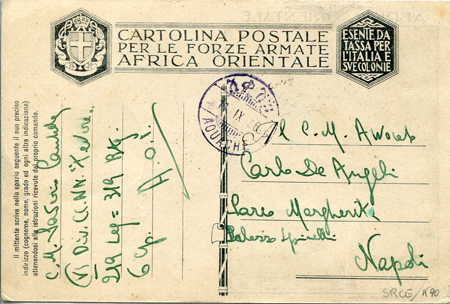 CARTOLINA POSTALE
PER LE FORZE ARMATE
AFRICA ORIENTALE
ESENTE DA
TASSA PER
L'ITALIA E
SVE COLONIE
Il mittente scrive nello spazio seguente il suo preciso
indirizzo (cognome, nome, grado ed ogni altra indicazione)
attenendosi alle istruzioni ricevute dal proprio comando.
C. M.
(V) Div. CC. NN.
219 Leg = 319 Btg.
6 Cp. A. O. I.
Il C. M. A
Carlo De Angeli
Parco Margherita
Palazzo Spinelli
Napoli
SRCE/K90